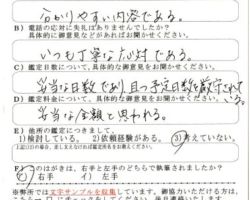 わかりやすい内容である。
B）電話の応対に失礼はありませんでしたか？
具体的に御意見などがあればお聞かせください。
いつも丁寧な応対である。
C）鑑定日数について、具体的な御意見をお聞かせください。
妥当な日数であり、且つ予定日数を厳守されている。
D）鑑定料金について、具体的な御意見をお聞かせください。
妥当な金額と思われる。
E）他所の鑑定につきまして。
1)検討している。 2)依頼経験がある。 3)考えていない。
F）このはがきは、右手と左手のどちらで執筆されましたか？
ア）右手 イ）左手
※弊所では文字サンプルを収集しています。御協力いただける方は、